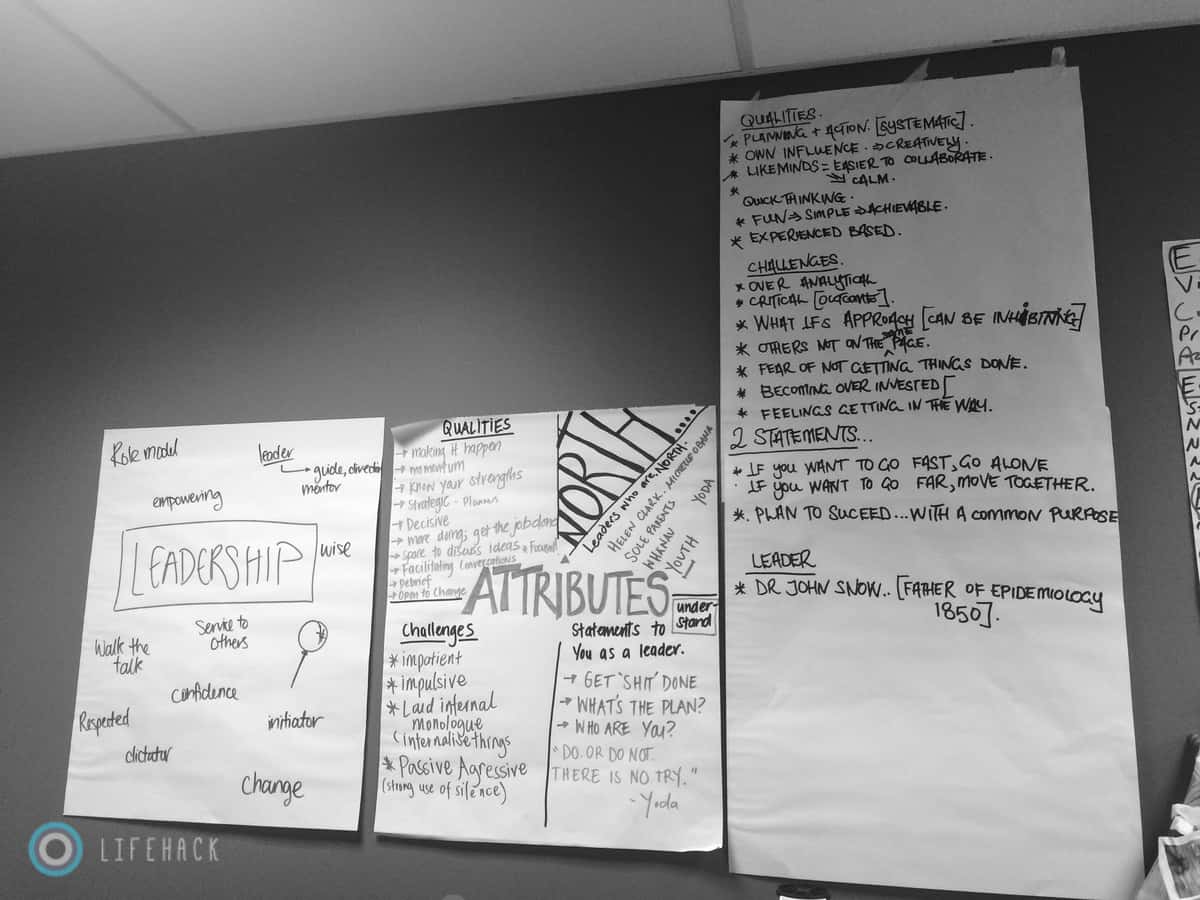 Role model
leader
guide, director
mentor
empowering
LEADERSHIP
wise
Service to
others
Walk the
talk
confidence
Respected
initiator
dictator
Change
QUALITIES
→ making it happen
→ momentum
→ Know your strengths
→ Strategic - Planner
→ Decisive
→ more doing; get the job done
→ space to discuss ideas & Focused
→ Facilitating Conversations
→ Debrief
→ Open to Change
NORTH
Leaders who are, NORTH.
HELEN CLARK. MICHELLE OBAMA
SOLE PARENTS
WHANAU
YODA
YOUTH
ATTRIBUTES
Challenges
* impatient
* impulsive
* Loud internal
monologue
internalise things
* Passive Agressive
(strong use of silence)
Statements to
under-
stand
You as a leader.
→ GET 'SHIT' DONE
→ WHAT'S THE PLAN?
→ WHO ARE YOU?
"DO. OR DO NOT.
THERE IS NO TRY."
- Yoda
QUALITIES.
* PLANNING + ACTION. [SYSTEMATIC].
* OWN INFLUENCE. ⇒ CREATIVELY.
* LIKEMINDS = EASIER TO COLLABORATE.
⇒ CALM.
*
QUICK THINKING.
* FUN ⇒ SIMPLE ⇒ ACHIEVABLE.
* EXPERIENCED BASED.
CHALLENGES.
* OVER ANALYTICAL
* CRITICAL [OUTCOME].
* WHAT IFS APPROACH [CAN BE INHIBITING]
* OTHERS NOT ON THE SAME PAGE.
* FEAR OF NOT GETTING THINGS DONE.
* BECOMING OVER INVESTED [
* FEELINGS GETTING IN THE WAY.
2 STATEMENTS...
* IF YOU WANT TO GO FAST, GO ALONE
IF YOU WANT TO GO FAR, MOVE TOGETHER.
*. PLAN TO SUCEED... WITH A COMMON PURPOSE
LEADER
* DR JOHN SNOW.. [FATHER OF EPIDEMIOLOGY
1850].
LIFEHACK